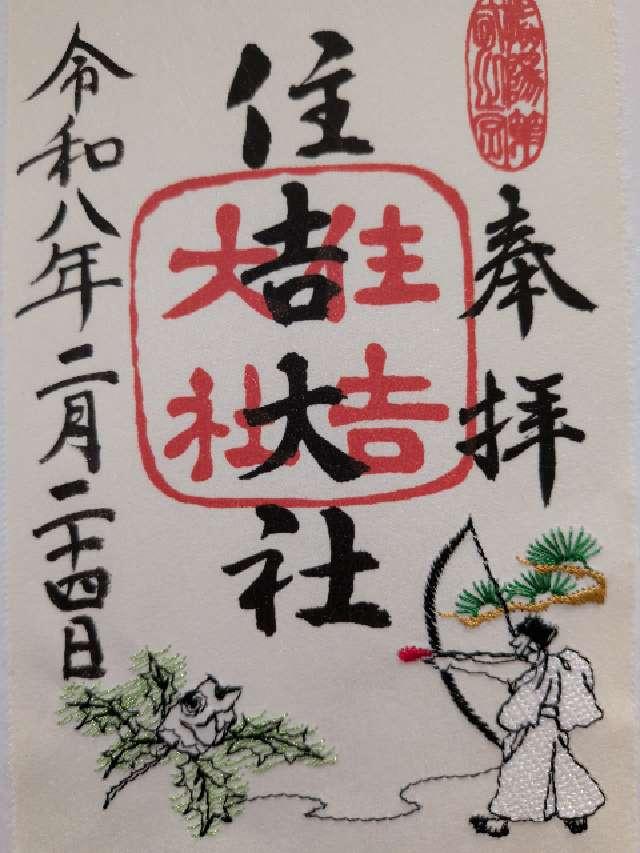 奉拝
住吉大社
住吉
大社
令和八年二月二十四日